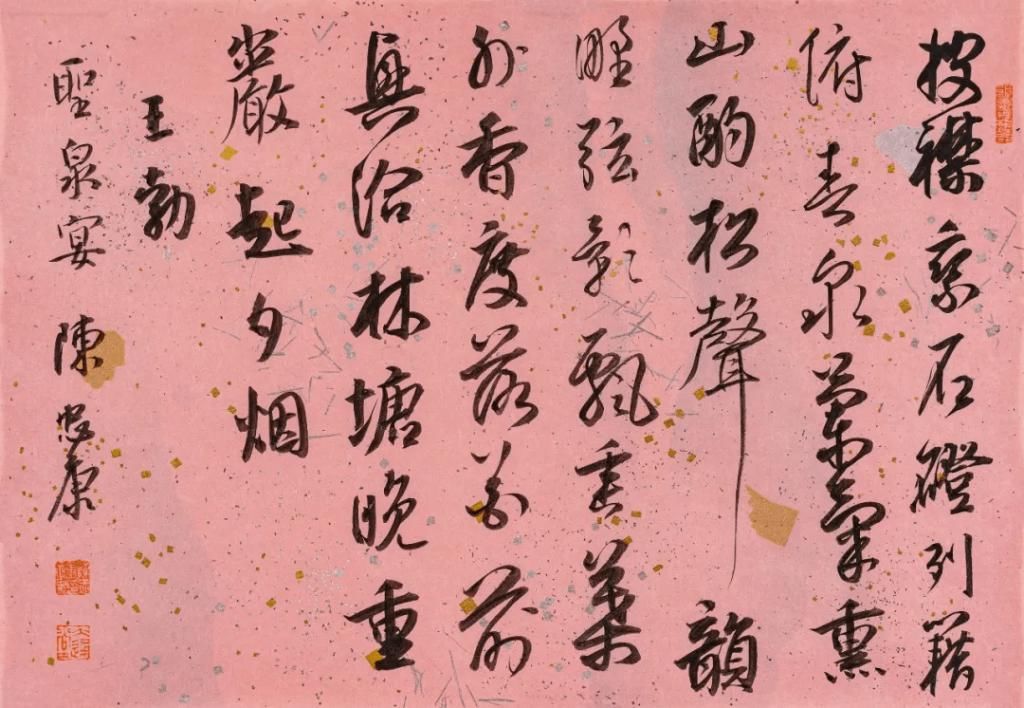 披襟乘石磴列籍
俯春泉蘭氣熏
山酌松聲韻
野弦影飄垂葉
外香度落花前
興洽林塘晚重
巖起夕烟
王勃
聖泉宴 陳忠康